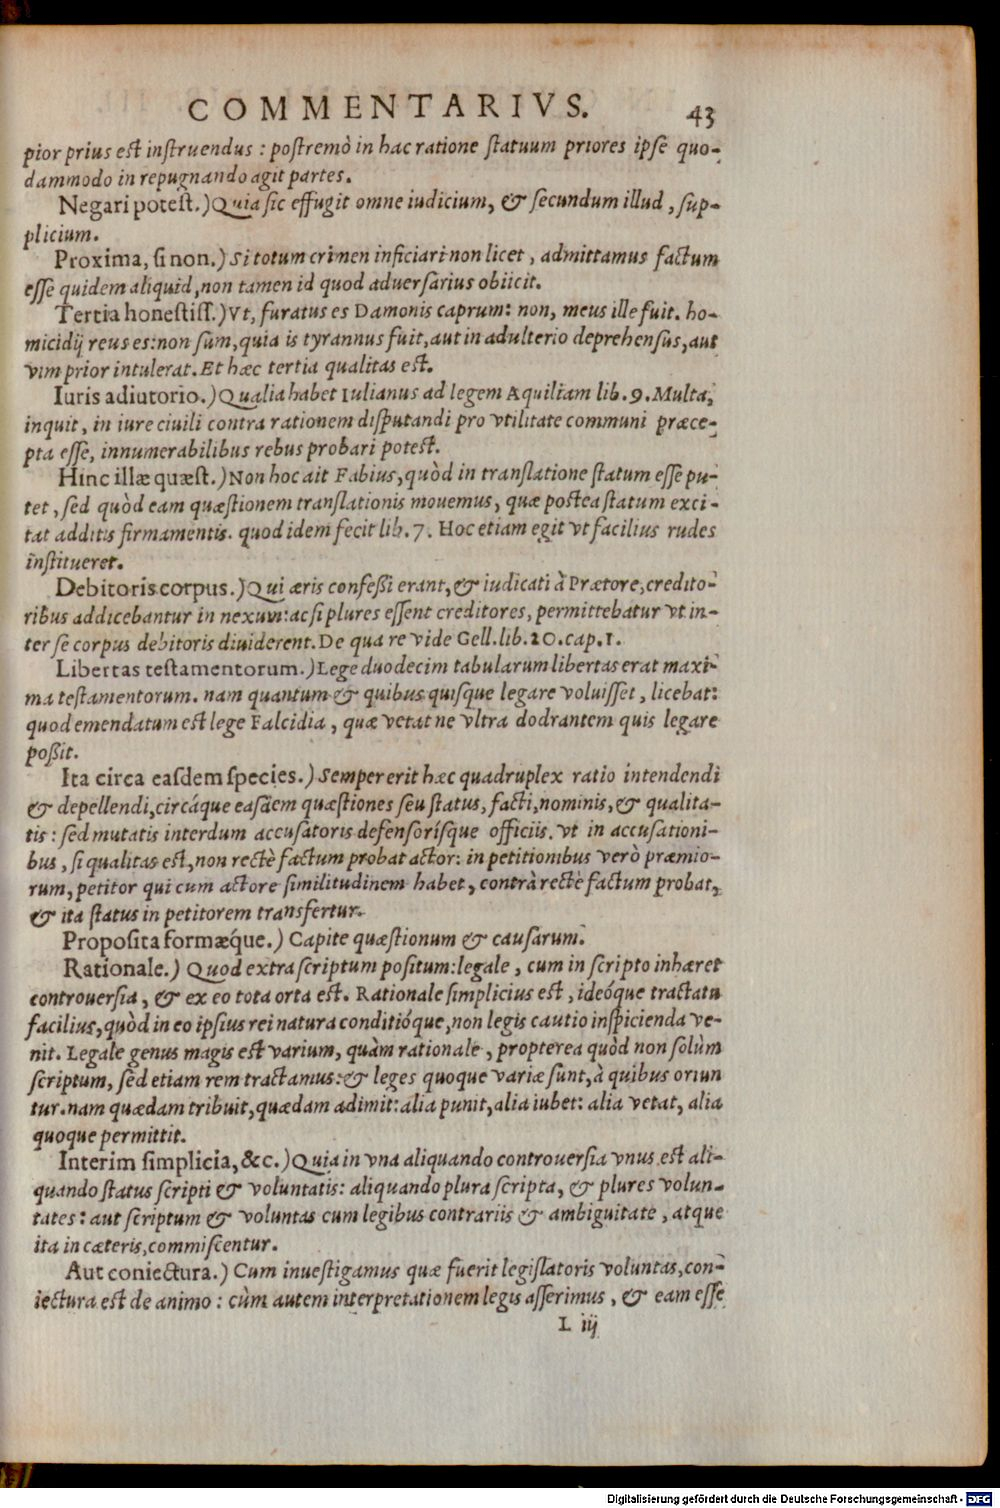 COMMENTARIVS. 43
pior prius est instruendus : postremò in hac ratione statuum priores ipse quo-
dammodo in repugnando agit partes.
Negari potest.) Quia sic effugit omne iudicium, & secundum illud, sup-
plicium.
Proxima, si non.) Si totum crimen inficiari non licet, admittamus factum
esse quidem aliquid, non tamen id quod aduersarius obiicit.
Tertia honestiss.) Vt, furatus es Damonis caprum: non, meus ille fuit. ho-
micidij reus es: non sum, quia is tyrannus fuit, aut in adulterio deprehensus, aut
vim prior intulerat. Et hæc tertia qualitas est.
Iuris adiutorio.) Qualia habet Iulianus ad legem Aquiliam lib. 9. Multa,
inquit, in iure ciuili contra rationem disputandi pro vtilitate communi præce-
pta esse, innumerabilibus rebus probari potest.
Hinc illæ quæst.) Non hoc ait Fabius, quòd in translatione statum esse pu-
tet, sed quòd eam quæstionem translationis mouemus, quæ postea statum exci-
tat additis firmamentis. quod idem fecit lib. 7. Hoc etiam egit vt facilius rudes
institueret.
Debitoris corpus.) Qui æris confeßi erant, & iudicati à Prætore, credito-
ribus addicebantur in nexum: ac si plures essent creditores, permittebatur vt in-
ter se corpus debitoris diuiderent. De qua re vide Gell. lib. 20. cap. 1.
Libertas testamentorum.) Lege duodecim tabularum libertas erat maxi-
ma testamentorum. nam quantum & quibus quisque legare voluisset, licebat:
quod emendatum est lege Falcidia, quæ vetat ne vltra dodrantem quis legare
poßit.
Ita circa easdem species.) Semper erit hæc quadruplex ratio intendendi
& depellendi, circáque easdem quæstiones seu status, facti, nominis, & qualita-
tis : sed mutatis interdum accusatoris defensorísque officiis. vt in accusationi-
bus, si qualitas est, non rectè factum probat actor: in petitionibus verò præmio-
rum, petitor qui cum actore similitudinem habet, contrà rectè factum probat,
& ita status in petitorem transfertur.
Proposita formæq́ue.) Capite quæstionum & causarum.
Rationale.) Quod extra scriptum positum: legale, cum in scripto inhæret
controuersia, & ex eo tota orta est. Rationale simplicius est, ideóque tractatu
facilius, quòd in eo ipsius rei natura conditióque, non legis cautio inspicienda ve-
nit. Legale genus magis est varium, quàm rationale, propterea quòd non solùm
scriptum, sed etiam rem tractamus: & leges quoque variæ sunt, à quibus oriun
tur. nam quædam tribuit, quædam adimit: alia punit, alia iubet: alia vetat, alia
quoque permittit.
Interim simplicia, &c.) Quia in vna aliquando controuersia vnus est ali-
quando status scripti & voluntatis: aliquando plura scripta, & plures volun-
tates: aut scriptum & voluntas cum legibus contrariis & ambiguitate, atque
ita in cæteris, commiscentur.
Aut coniectura.) Cum inuestigamus quæ fuerit legislatoris voluntas, con-
iectura est de animo : cùm autem interpretationem legis asserimus, & eam esse
L iij
Digitalisierung gefördert durch die Deutsche Forschungsgemeinschaft - DFG